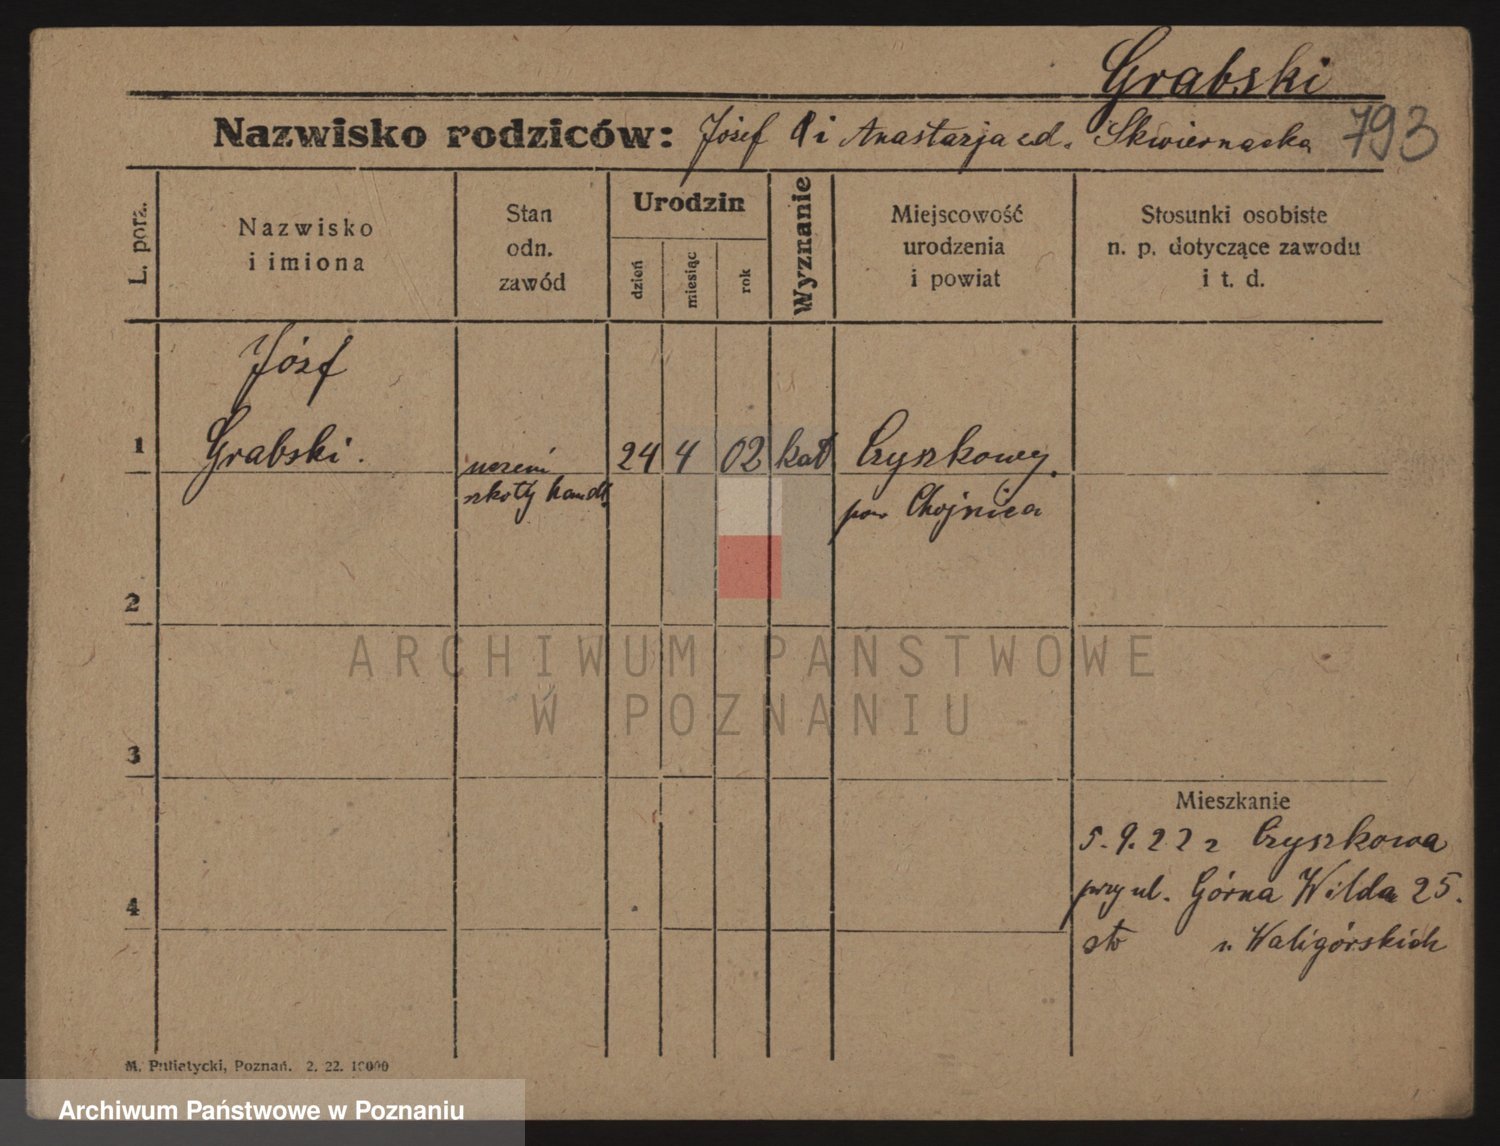 Grabski
Nazwisko rodziców: Józef i Anastazja zd. Skwiernacka 793
L. porz.
Nazwisko
i imiona
Stan
odn.
zawód
Urodzin
dzień
miesiąc
rok
Wyznanie
Miejscowość
urodzenia
i powiat
Stosunki osobiste
n. p. dotyczące zawodu
i t. d.
Józf
1 Grabski. uczeń 24 4 02 kat Czyszkowy.
szkoły handl. pow Chojnica
2
ARCHIWUM PAŃSTWOWE
W POZNANIU
3
Mieszkanie
5.9.22 z Czyszkowa
przy ul. Górna Wilda 25.
4
u Waligórskich
M. Putiatycki, Poznań. 2. 22. 10000
Archiwum Państwowe w Poznaniu